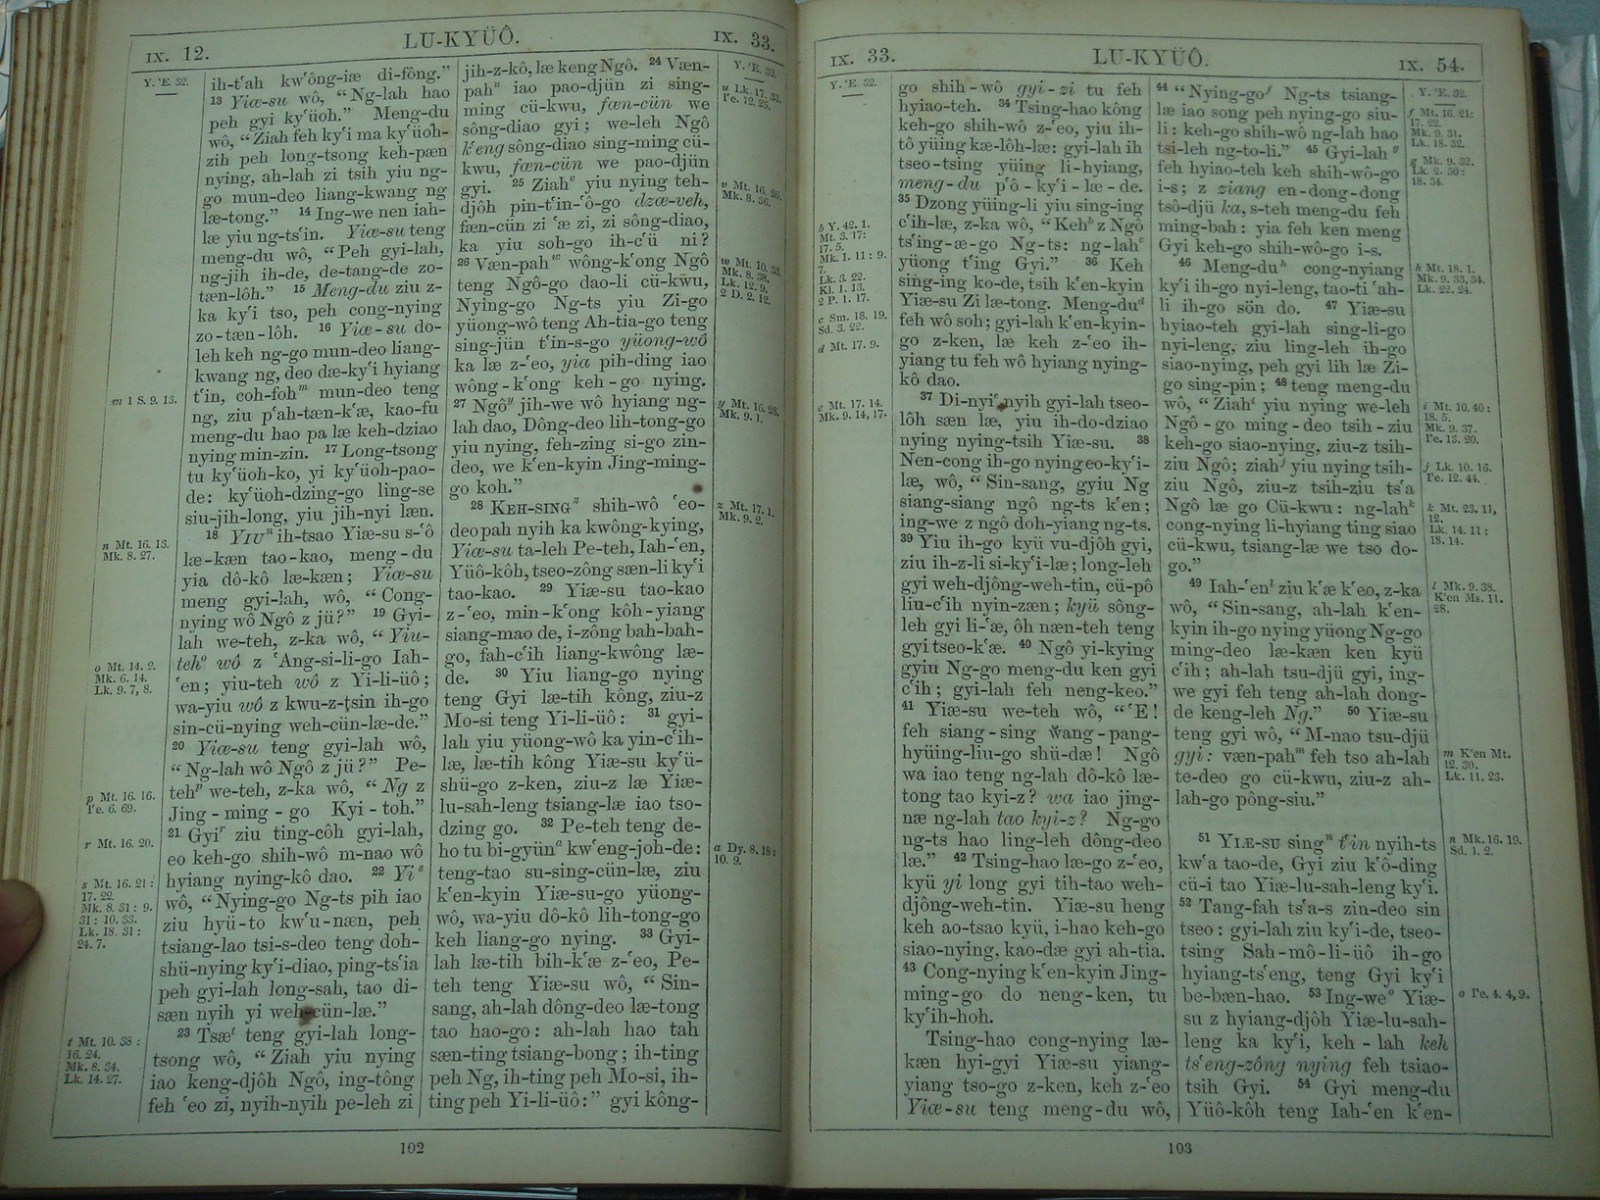 IX. 12. LU-KYÜÔ. IX. 33.
Y. ʻE. 32.
ih-tʻah kwʻông-iæ di-fông.”
13 Yiæ-su wô, “Ng-lah hao
peh gyi kyʻüoh.” Meng-du
wô, “Ziah feh kyʻi ma kyʻüoh-
zih peh long-tsong keh-pæn
nying, ah-lah zi tsih yiu ng-
go mun-deo liang-kwang ng
læ-tong.” 14 Ing-we nen iah-
læ yiu ng-tsʻin. Yiæ-su teng
meng-du wô, “Peh gyi-lah,
ng-jih ih-de, de-tang-de zo-
tæn-lôh.” 15 Meng-du ziu z-
ka kyʻi tso, peh cong-nying
zo-tæn-lôh. 16 Yiæ-su do-
leh keh ng-go mun-deo liang-
kwang ng, deo dæ-kyʻi hyiang
tʻin, coh-foh m mun-deo teng
ng, ziu pʻah-tæn-kʻæ, kao-fu
meng-du hao pa læ keh-dziao
nying min-zin. 17 Long-tsong
tu kyʻüoh-ko, yi kyʻüoh-pao-
de: kyʻüoh-dzing-go ling-se
siu-jih-long, yiu jih-nyi læn.
18 YIU n ih-tsao Yiæ-su s-ʻô
læ-kæn tao-kao, meng-du
yia dô-kô læ-kæn; Yiæ-su
meng gyi-lah, wô, “Cong-
nying wô Ngô z jü?” 19 Gyi-
lah we-teh, z-ka wô, “Yiu-
teh o wô z ʻAng-si-li-go Iah-
ʻen; yiu-teh wô z Yi-li-üô;
wa-yiu wô z kwu-z-tsin ih-go
sin-cü-nying weh-cün-læ-de.”
20 Yiæ-su teng gyi-lah wô,
“Ng-lah wô Ngô z jü?” Pe-
teh p we-teh, z-ka wô, “Ng z
Jing-ming-go Kyi-toh.”
21 Gyi r ziu ting-côh gyi-lah,
eo keh-go shih-wô m-nao wô
hyiang nying-kô dao. 22 Yi s
wô, “Nying-go Ng-ts pih iao
ziu hyü-to kwʻu-næn, peh
tsiang-lao tsi-s-deo teng doh-
shü-nying kyʻi-diao, ping-tsʻia
peh gyi-lah long-sah, tao di-
sæn nyih yi weh-cün-læ.”
23 Tsæ t teng gyi-lah long-
tsong wô, “Ziah yiu nying
iao keng-djôh Ngô, ing-tông
feh ʻeo zi, nyih-nyih pe-leh zi
m 1 S. 9. 13.
n Mt. 16. 13.
Mk. 8. 27.
o Mt. 14. 2.
Mk. 6. 14.
Lk. 9. 7, 8.
p Mt. 16. 16.
Iʻe. 6. 69.
r Mt. 16. 20.
s Mt. 16. 21:
17. 22.
Mk. 8. 31: 9.
31: 10. 33.
Lk. 18. 31:
24. 7.
t Mt. 10. 38:
16. 24.
Mk. 8. 34.
Lk. 14. 27.
jih-z-kô, læ keng Ngô. 24 Væn-
pah u iao pao-djün zi sing-
ming cü-kwu, fæn-cün we
sông-diao gyi; we-leh Ngô
kʻeng sông-diao sing-ming cü-
kwu, fæn-cün we pao-djün
gyi. 25 Ziah v yiu nying teh-
djôh pin-tʻin-ʻô-go dzæ-veh,
fæn-cün zi ʻæ zi, zi sông-diao,
ka yiu soh-go ih-cʻü ni?
26 Væn-pah w wông-kʻong Ngô
teng Ngô-go dao-li cü-kwu,
Nying-go Ng-ts yiu Zi-go
yüong-wô teng Ah-tia-go teng
sing-jün tʻin-s-go yüong-wô
ka læ z-ʻeo, yia pih-ding iao
wông-kʻong keh-go nying.
27 Ngô y jih-we wô hyiang ng-
lah dao, Dông-deo lih-tong-go
yiu nying, feh-zing si-go zin-
deo, we kʻen-kyin Jing-ming-
go koh.”
28 KEH-SING z shih-wô ʻeo-
deo pah nyih ka kwông-kying,
Yiæ-su ta-leh Pe-teh, Iah-ʻen,
Yüô-kôh, tseo-zông sæn-li kyʻi
tao-kao. 29 Yiæ-su tao-kao
z-ʻeo, min-kʻong kôh-yiang
siang-mao de, i-zông bah-bah-
go, fah-cʻih liang-kwông læ-
de. 30 Yiu liang-go nying
teng Gyi læ-tih kông, ziu-z
Mo-si teng Yi-li-üô: 31 gyi-
lah yiu yüong-wô ka yin-cʻih-
læ, læ-tih kông Yiæ-su kyʻü-
shü-go z-ken, ziu-z læ Yiæ-
lu-sah-leng tsiang-læ iao tso-
dzing go. 32 Pe-teh teng de-
ho tu bi-gyün a kwʻeng-joh-de:
teng-tao su-sing-cün-læ, ziu
kʻen-kyin Yiæ-su-go yüong-
wô, wa-yiu dô-kô lih-tong-go
keh liang-go nying. 33 Gyi-
lah læ-tih bih-kʻæ z-ʻeo, Pe-
teh teng Yiæ-su wô, “Sin-
sang, ah-lah dông-deo læ-tong
tao hao-go: ah-lah hao tah
sæn-ting tsiang-bong; ih-ting
peh Ng, ih-ting peh Mo-si, ih-
ting peh Yi-li-üô:” gyi kông-
Y. ʻE. 32.
u Lk. 17. 33.
Iʻe. 12. 25.
v Mt. 16. 26.
Mk. 8. 36.
w Mt. 10. 33.
Mk. 8. 38.
Lk. 12. 9.
2 D. 2. 12.
y Mt. 16. 28.
Mk. 9. 1.
z Mt. 17. 1.
Mk. 9. 2.
a Dy. 8. 18:
10. 9.
102
IX. 33. LU-KYÜÔ. IX. 54.
Y. ʻE. 32.
go shih-wô gyi-zi tu feh
hyiao-teh. 34 Tsing-hao kông
keh-go shih-wô z-ʻeo, yiu ih-
tô yüing kæ-lôh-læ: gyi-lah ih
tseo-tsing yüing li-hyiang,
meng-du pʻô-kyʻi-læ-de.
35 Dzong yüing-li yiu sing-ing
cʻih-læ, z-ka wô, “Keh b z Ngô
tsʻing-æ-go Ng-ts: ng-lah c
yüong tʻing Gyi.” 36 Keh
sing-ing ko-de, tsih kʻen-kyin
Yiæ-su Zi læ-tong. Meng-du d
feh wô soh; gyi-lah kʻen-kyin-
go z-ken, læ keh z-ʻeo ih-
yiang tu feh wô hyiang nying-
kô dao.
37 Di-nyi e nyih gyi-lah tseo-
lôh sæn læ, yiu ih-do-dziao
nying nying-tsih Yiæ-su. 38
Nen-cong ih-go nying eo-kyʻi-
læ, wô, “Sin-sang, gyiu Ng
siang-siang ngô ng-ts kʻen;
ing-we z ngô doh-yiang ng-ts.
39 Yiu ih-go kyü vu-djôh gyi,
ziu ih-z-li si-kyʻi-læ; long-leh
gyi weh-djông-weh-tin, cü-pô
liu-cʻih nyin-zæn; kyü sông-
leh gyi li-ʻæ, ôh næn-teh teng
gyi tseo-kʻæ. 40 Ngô yi-kying
gyiu Ng-go meng-du ken gyi
cʻih; gyi-lah feh neng-keo.”
41 Yiæ-su we-teh wô, “ʻE!
feh siang-sing Wang-pang-
hyüing-liu-go shü-dæ! Ngô
wa iao teng ng-lah dô-kô læ-
tong tao kyi-z? wa iao jing-
næ ng-lah tao kyi-z? Ng-go
ng-ts hao ling-leh dông-deo
læ.” 42 Tsing-hao læ-go z-ʻeo,
kyü yi long gyi tih-tao weh-
djông-weh-tin. Yiæ-su heng
keh ao-tsao kyü, i-hao keh-go
siao-nying, kao-dæ gyi ah-tia.
43 Cong-nying kʻen-kyin Jing-
ming-go do neng-ken, tu
kyʻih-hoh.
Tsing-hao cong-nying læ-
kæn hyi-gyi Yiæ-su yiang-
yiang tso-go z-ken, keh z-ʻeo
Yiæ-su teng meng-du wô,
b Y. 42. 1.
Mt. 3. 17:
17. 5.
Mk. 1. 11: 9.
7.
Lk. 3. 22.
Kl. 1. 13.
2 P. 1. 17.
c Sm. 18. 19.
Sd. 3. 22.
d Mt. 17. 9.
e Mt. 17. 14.
Mk. 9. 14, 17.
44 “Nying-go f Ng-ts tsiang-
læ iao song peh nying-go siu-
li: keh-go shih-wô ng-lah hao
tsi-leh ng-to-li.” 45 Gyi-lah g
feh hyiao-teh keh shih-wô-go
i-s; z ziang en-dong-dong
tsô-djü ka, s-teh meng-du feh
ming-bah: yia feh ken meng
Gyi keh-go shih-wô-go i-s.
46 Meng-du h cong-nyiang
kyʻi ih-go nyi-leng, tao-ti ʻah-
li ih-go sön do. 47 Yiæ-su
hyiao-teh gyi-lah sing-li-go
nyi-leng, ziu ling-leh ih-go
siao-nying, peh gyi lih læ Zi-
go sing-pin; 48 teng meng-du
wô, “Ziah i yiu nying we-leh
Ngô-go ming-deo tsih-ziu
keh-go siao-nying, ziu-z tsih-
ziu Ngô; ziah j yiu nying tsih-
ziu Ngô, ziu-z tsih-ziu tsʻa
Ngô læ go Cü-kwu: ng-lah k
cong-nying li-hyiang ting siao
cü-kwu, tsiang-læ we tso do-
go.”
49 Iah-ʻen l ziu kʻæ kʻeo, z-ka
wô, “Sin-sang, ah-lah kʻen-
kyin ih-go nying yüong Ng-go
ming-deo læ-kæn ken kyü
cʻih; ah-lah tsu-djü gyi, ing-
we gyi feh teng ah-lah dong-
de keng-leh Ng.” 50 Yiæ-su
teng gyi wô, “M-nao tsu-djü
gyi: væn-pah m feh tso ah-lah
te-deo go cü-kwu, ziu-z ah-
lah-go pông-siu.”
51 YIÆ-SU sing n tʻin nyih-ts
kwʻa tao-de, Gyi ziu kʻô-ding
cü-i tao Yiæ-lu-sah-leng kyʻi.
52 Tang-fah tsʻa-s zin-deo sin
tseo: gyi-lah ziu kyʻi-de, tseo-
tsing Sah-mô-li-üô ih-go
hyiang-tsʻeng, teng Gyi kyʻi
be-bæn-hao. 53 Ing-we o Yiæ-
su z hyiang-djôh Yiæ-lu-sah-
leng ka kyʻi, keh-lah keh
tsʻeng-zông nying feh tsiao-
tsih Gyi. 54 Gyi meng-du
Yüô-kôh teng Iah-ʻen kʻen-
Y. ʻE. 32.
f Mt. 16. 21:
17. 22.
Mk. 9. 31.
Lk. 18. 32.
g Mk. 9. 32.
Lk. 2. 50:
18. 34.
h Mt. 18. 1.
Mk. 9. 33, 34.
Lk. 22. 24.
i Mt. 10. 40:
18. 5.
Mk. 9. 37.
Iʻe. 13. 20.
j Lk. 10. 16.
Iʻe. 12. 44.
k Mt. 23. 11,
12.
Lk. 14. 11:
18. 14.
l Mk. 9. 38.
Kʻen Ms. 11.
28.
m Kʻen Mt.
12. 30.
Lk. 11. 23.
n Mk. 16. 19.
Sd. 1. 2.
o Iʻe. 4. 4, 9.
103